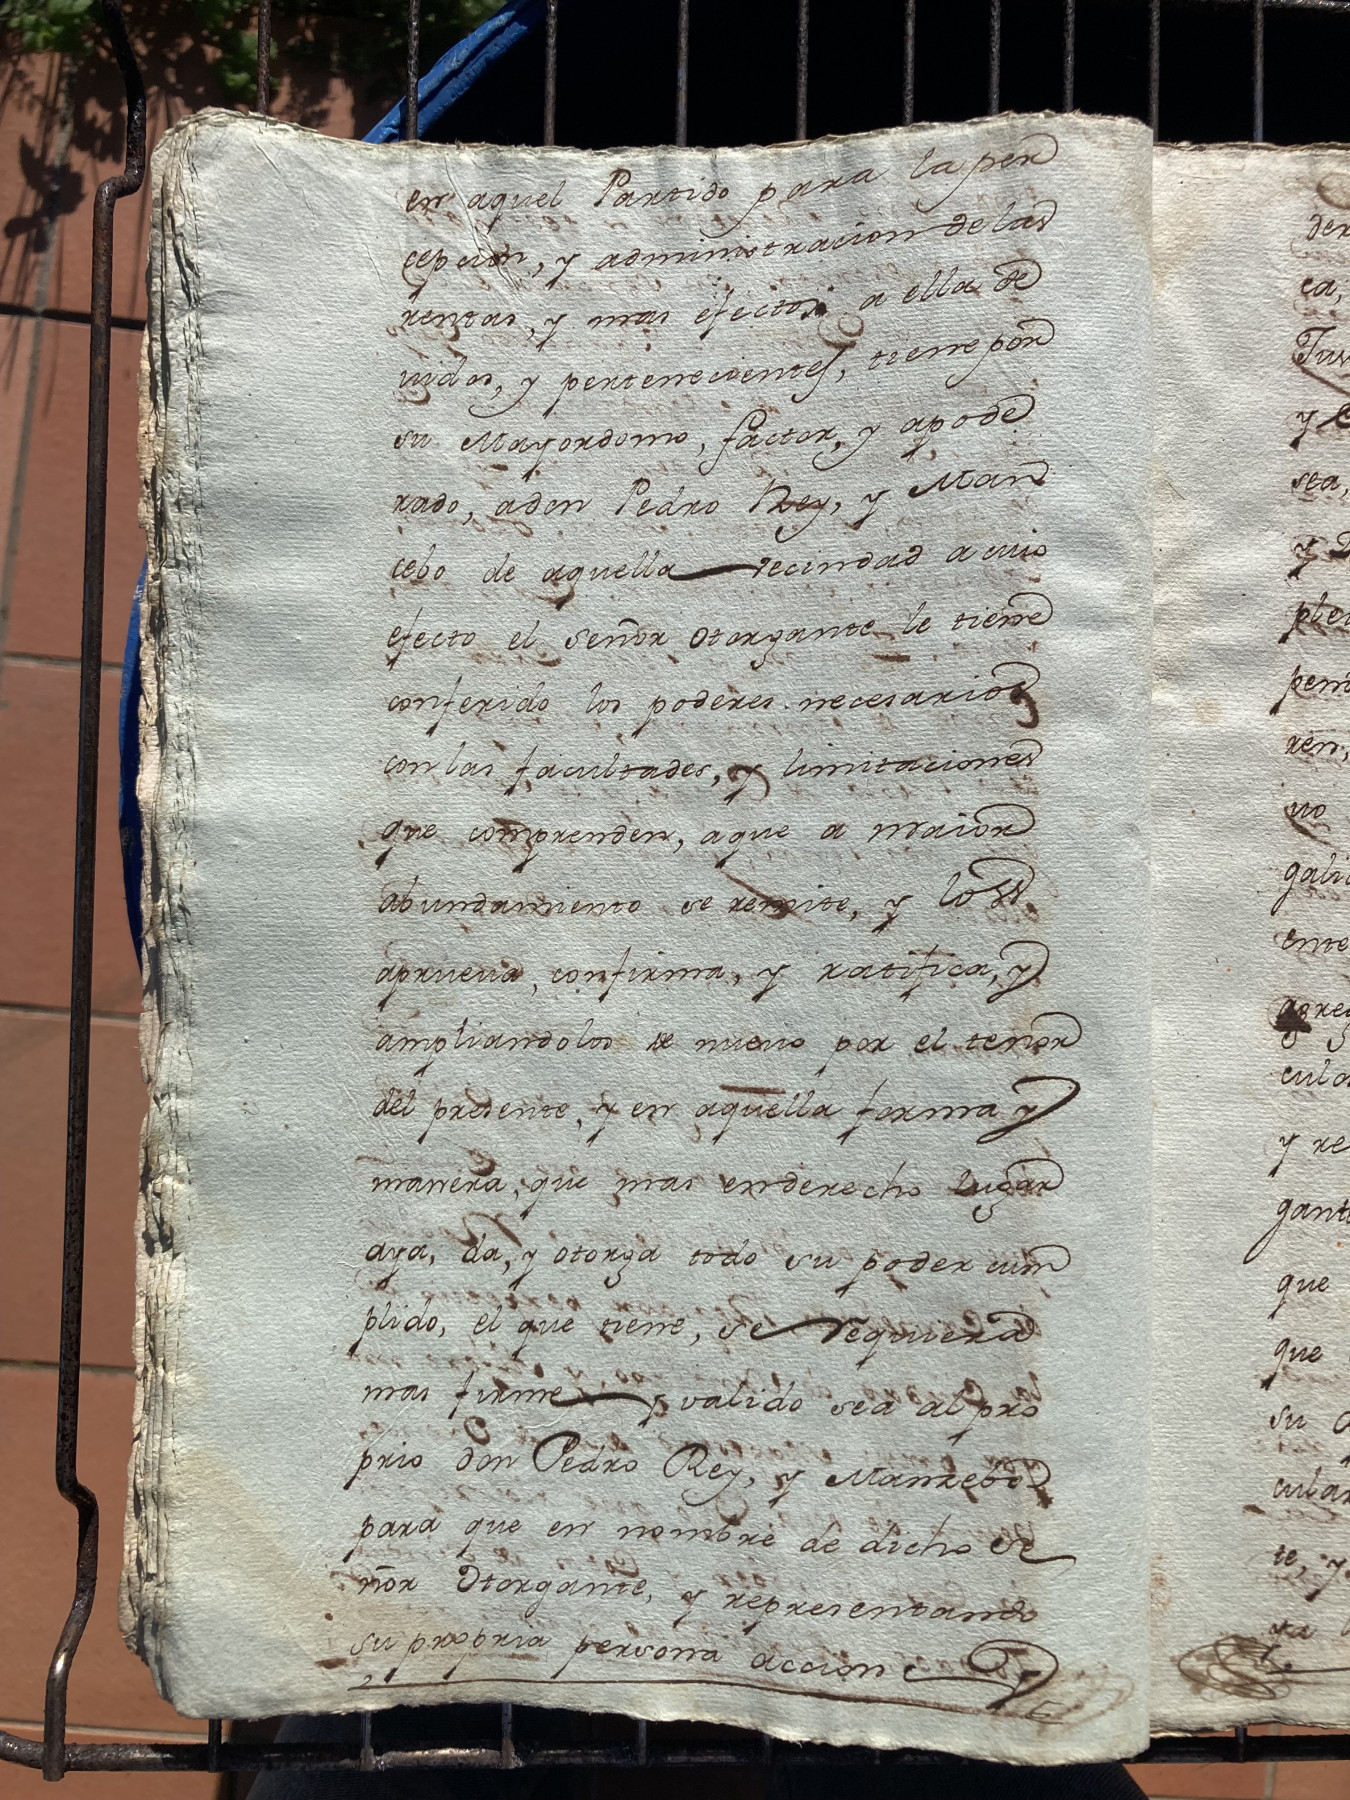 en aquel Partido para la per
cepcion, y administracion de las
rentas, y mas efectos a ella de
uidos, y pertenecientes, tiene por
su Mayordomo, factor, y apode
rado, a don Pedro Rey, y Man
cebo de aquella vecindad a cuio
efecto el señor otorgante le tiene
conferido los poderes necesarios
con las facultades, y limitaciones
que comprenden, a que a maior
abundamiento se remite, y los
aprueva, confirma, y ratifica, y
ampliandolos de nuevo por el tenor
del presente, y en aquella forma y
manera, que mas en derecho lugar
aya, da, y otorga todo su poder cum
plido, el que tiene, se requiera
mas firme y valido sea al pro
prio don Pedro Rey, y Manzebo
para que en nombre de dicho se
ñor Otorgante, y representando
su propria persona accion
der
ca,
y
sea,
y
ren,
no
gali
ente
y re
gant
que
que
su
te, y